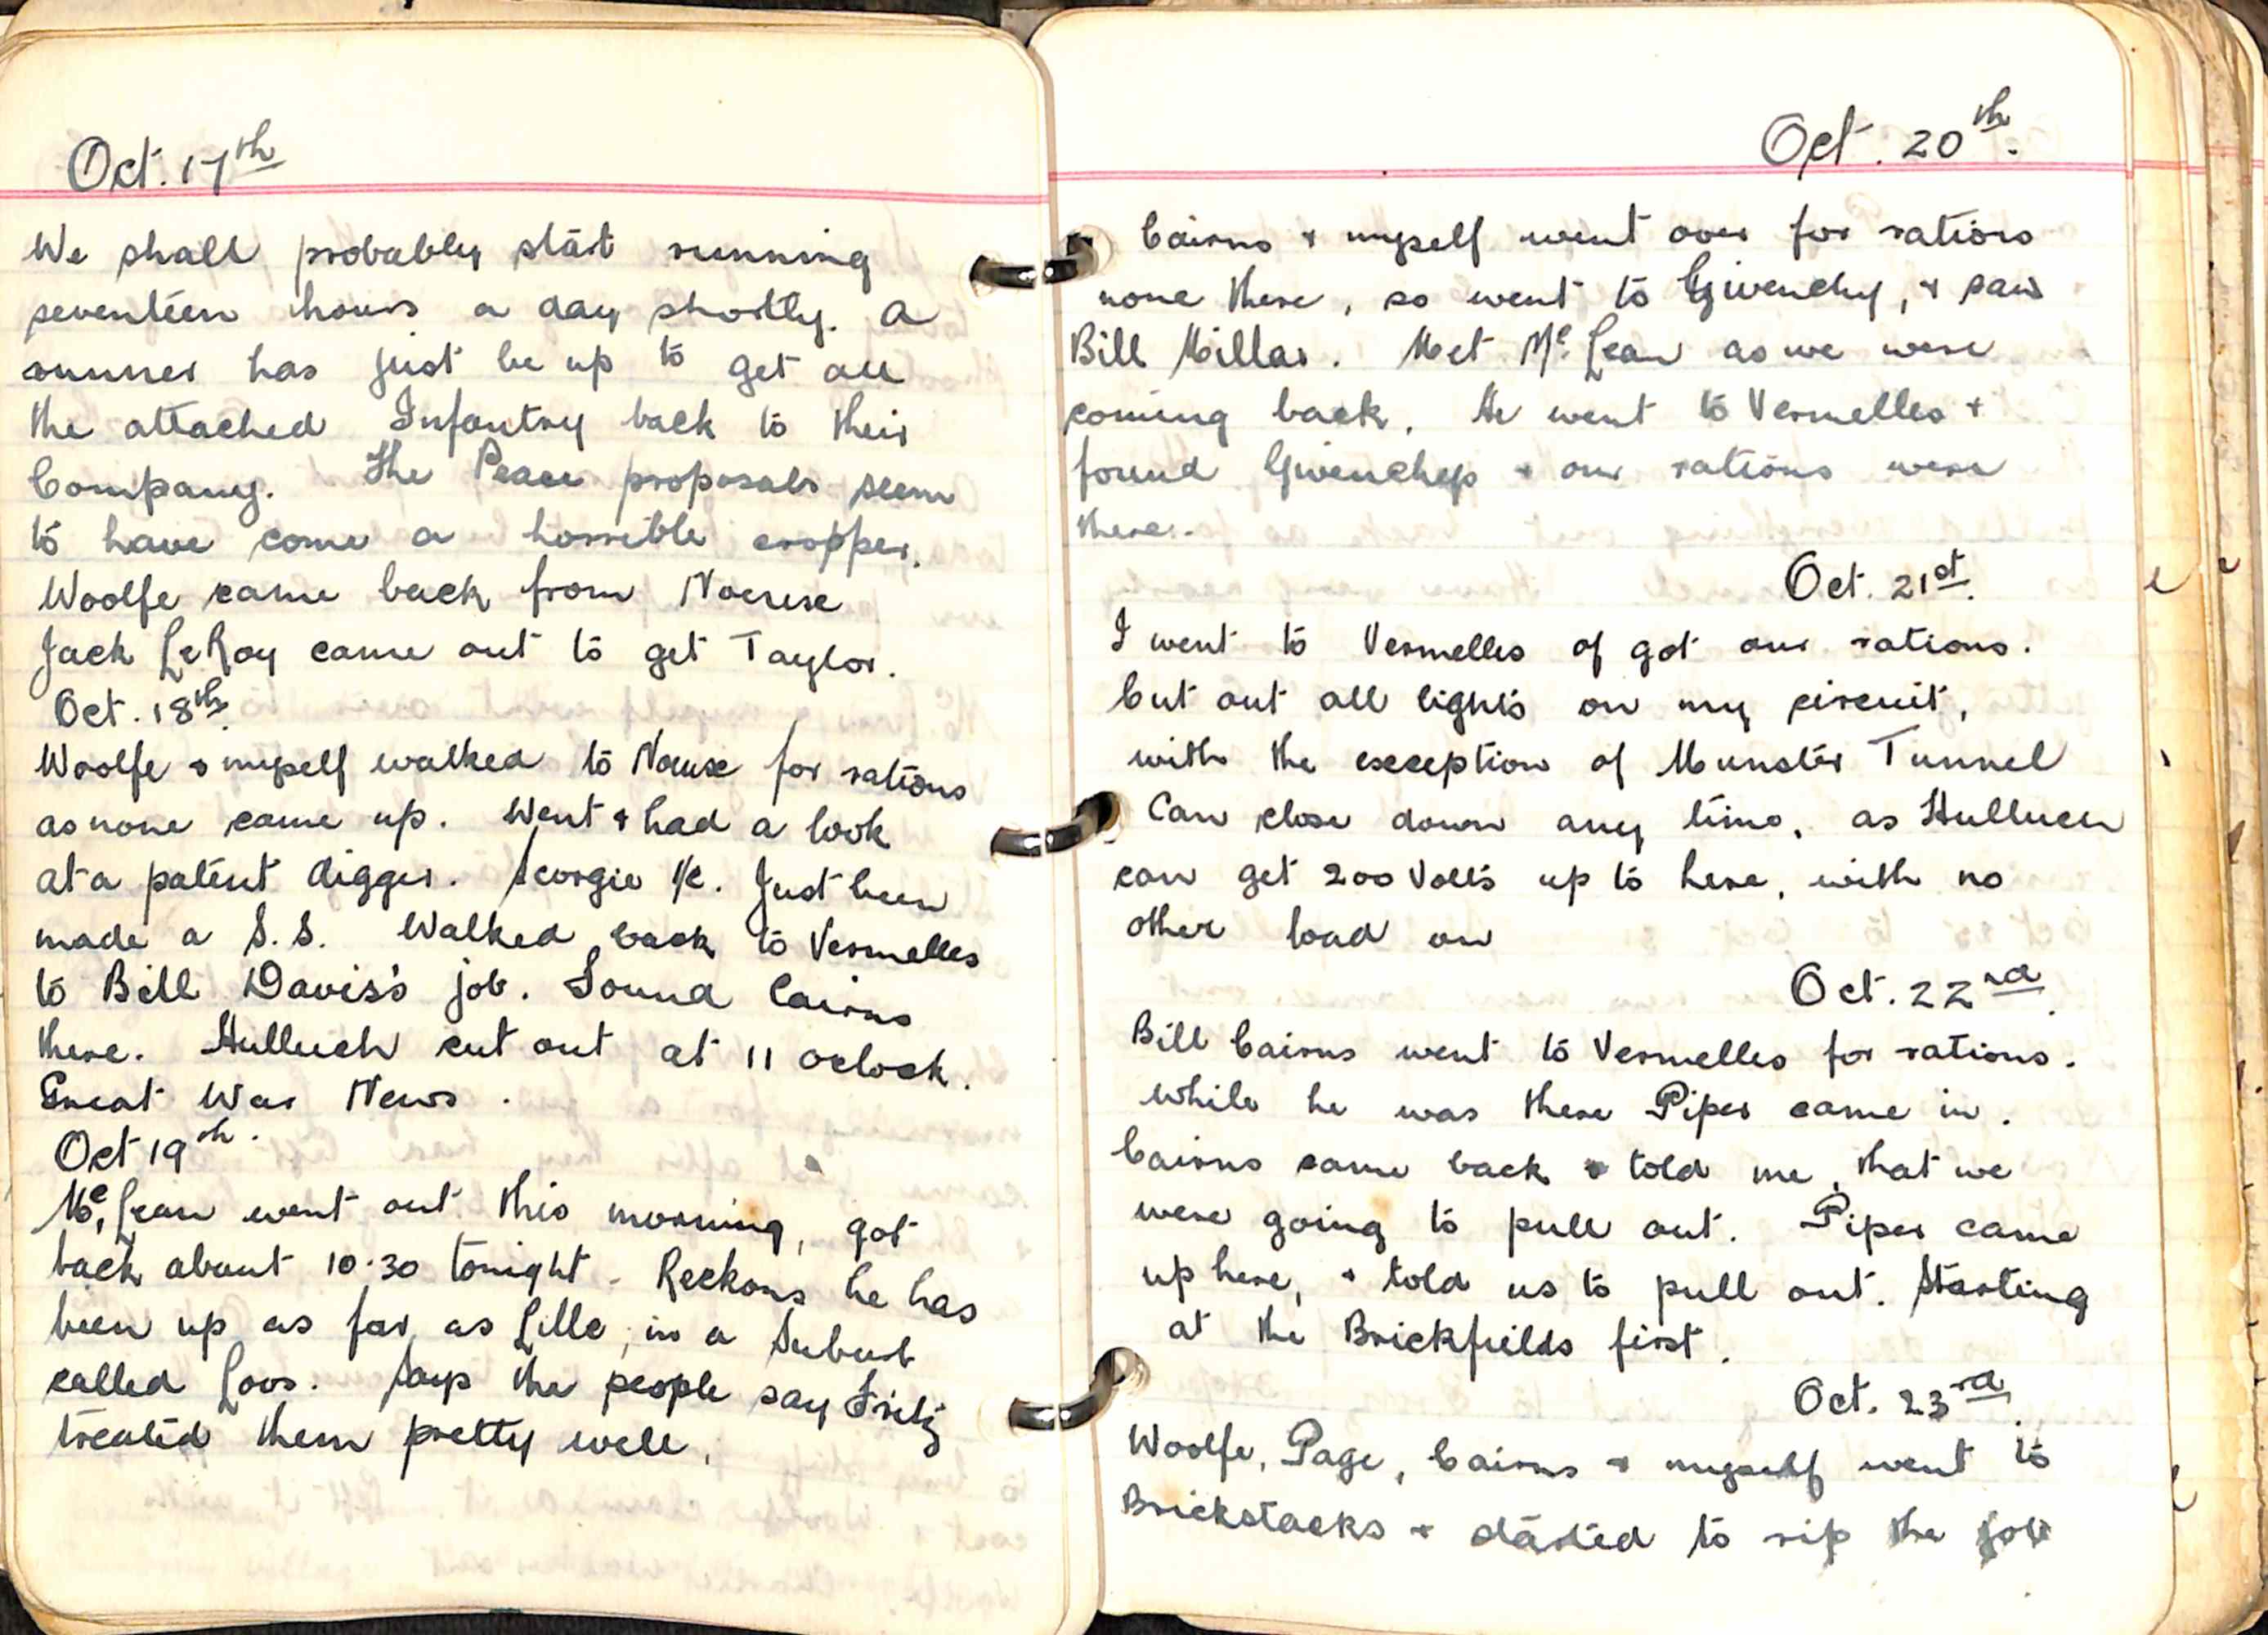 Oct. 17th
We shall probably start running
seventeen hours a day shortly. A
runner has just be up to get all
the attached Infantry back to their
Company. The Peace proposals seem
to have come a horrible cropper.
Woolfe came back from Noeuse
Jack LeRoy came out to get Taylor.
Oct. 18th.
Woolfe & myself walked to Noeuse for rations
as none came up. Went & had a look
at a patent digger. Georgie i/c. Just been
made a S.S. Walked back to Vermelles
to Bill Davis's job. Found Cairns
there. Hulluch cut out at 11 oclock.
Great War News.
Oct 19th.
Mc.Lean went out this morning, got
back about 10.30 tonight. Reckons he has
been up as far as Lille, in a Suburb
called Loos. Says the people say Fritz
treated them pretty well.
Oct. 20th.
Cairns & myself went over for rations
none there, so went to Givenchy, & saw
Bill Millar. Met Mc.Lean as we were
coming back. He went to Vermelles &
found Givenchys & our rations were
there.
Oct. 21st.
I went to Vermelles of got our rations.
Cut out all lights on my circuit,
with the exception of Munster Tunnel
Can close down any time, as Hulluch
can get 200 Volts up to here, with no
other load on
Oct. 22nd.
Bill Cairns went to Vermelles for rations.
while he was there Piper came in.
Cairns came back & told me, that we
were going to pull out. Piper came
up here, & told us to pull out. Starting
at the Brickfields first.
Oct. 23rd.
Woolfe, Page, Cairns & myself went to
Brickstacks & started to rip the job